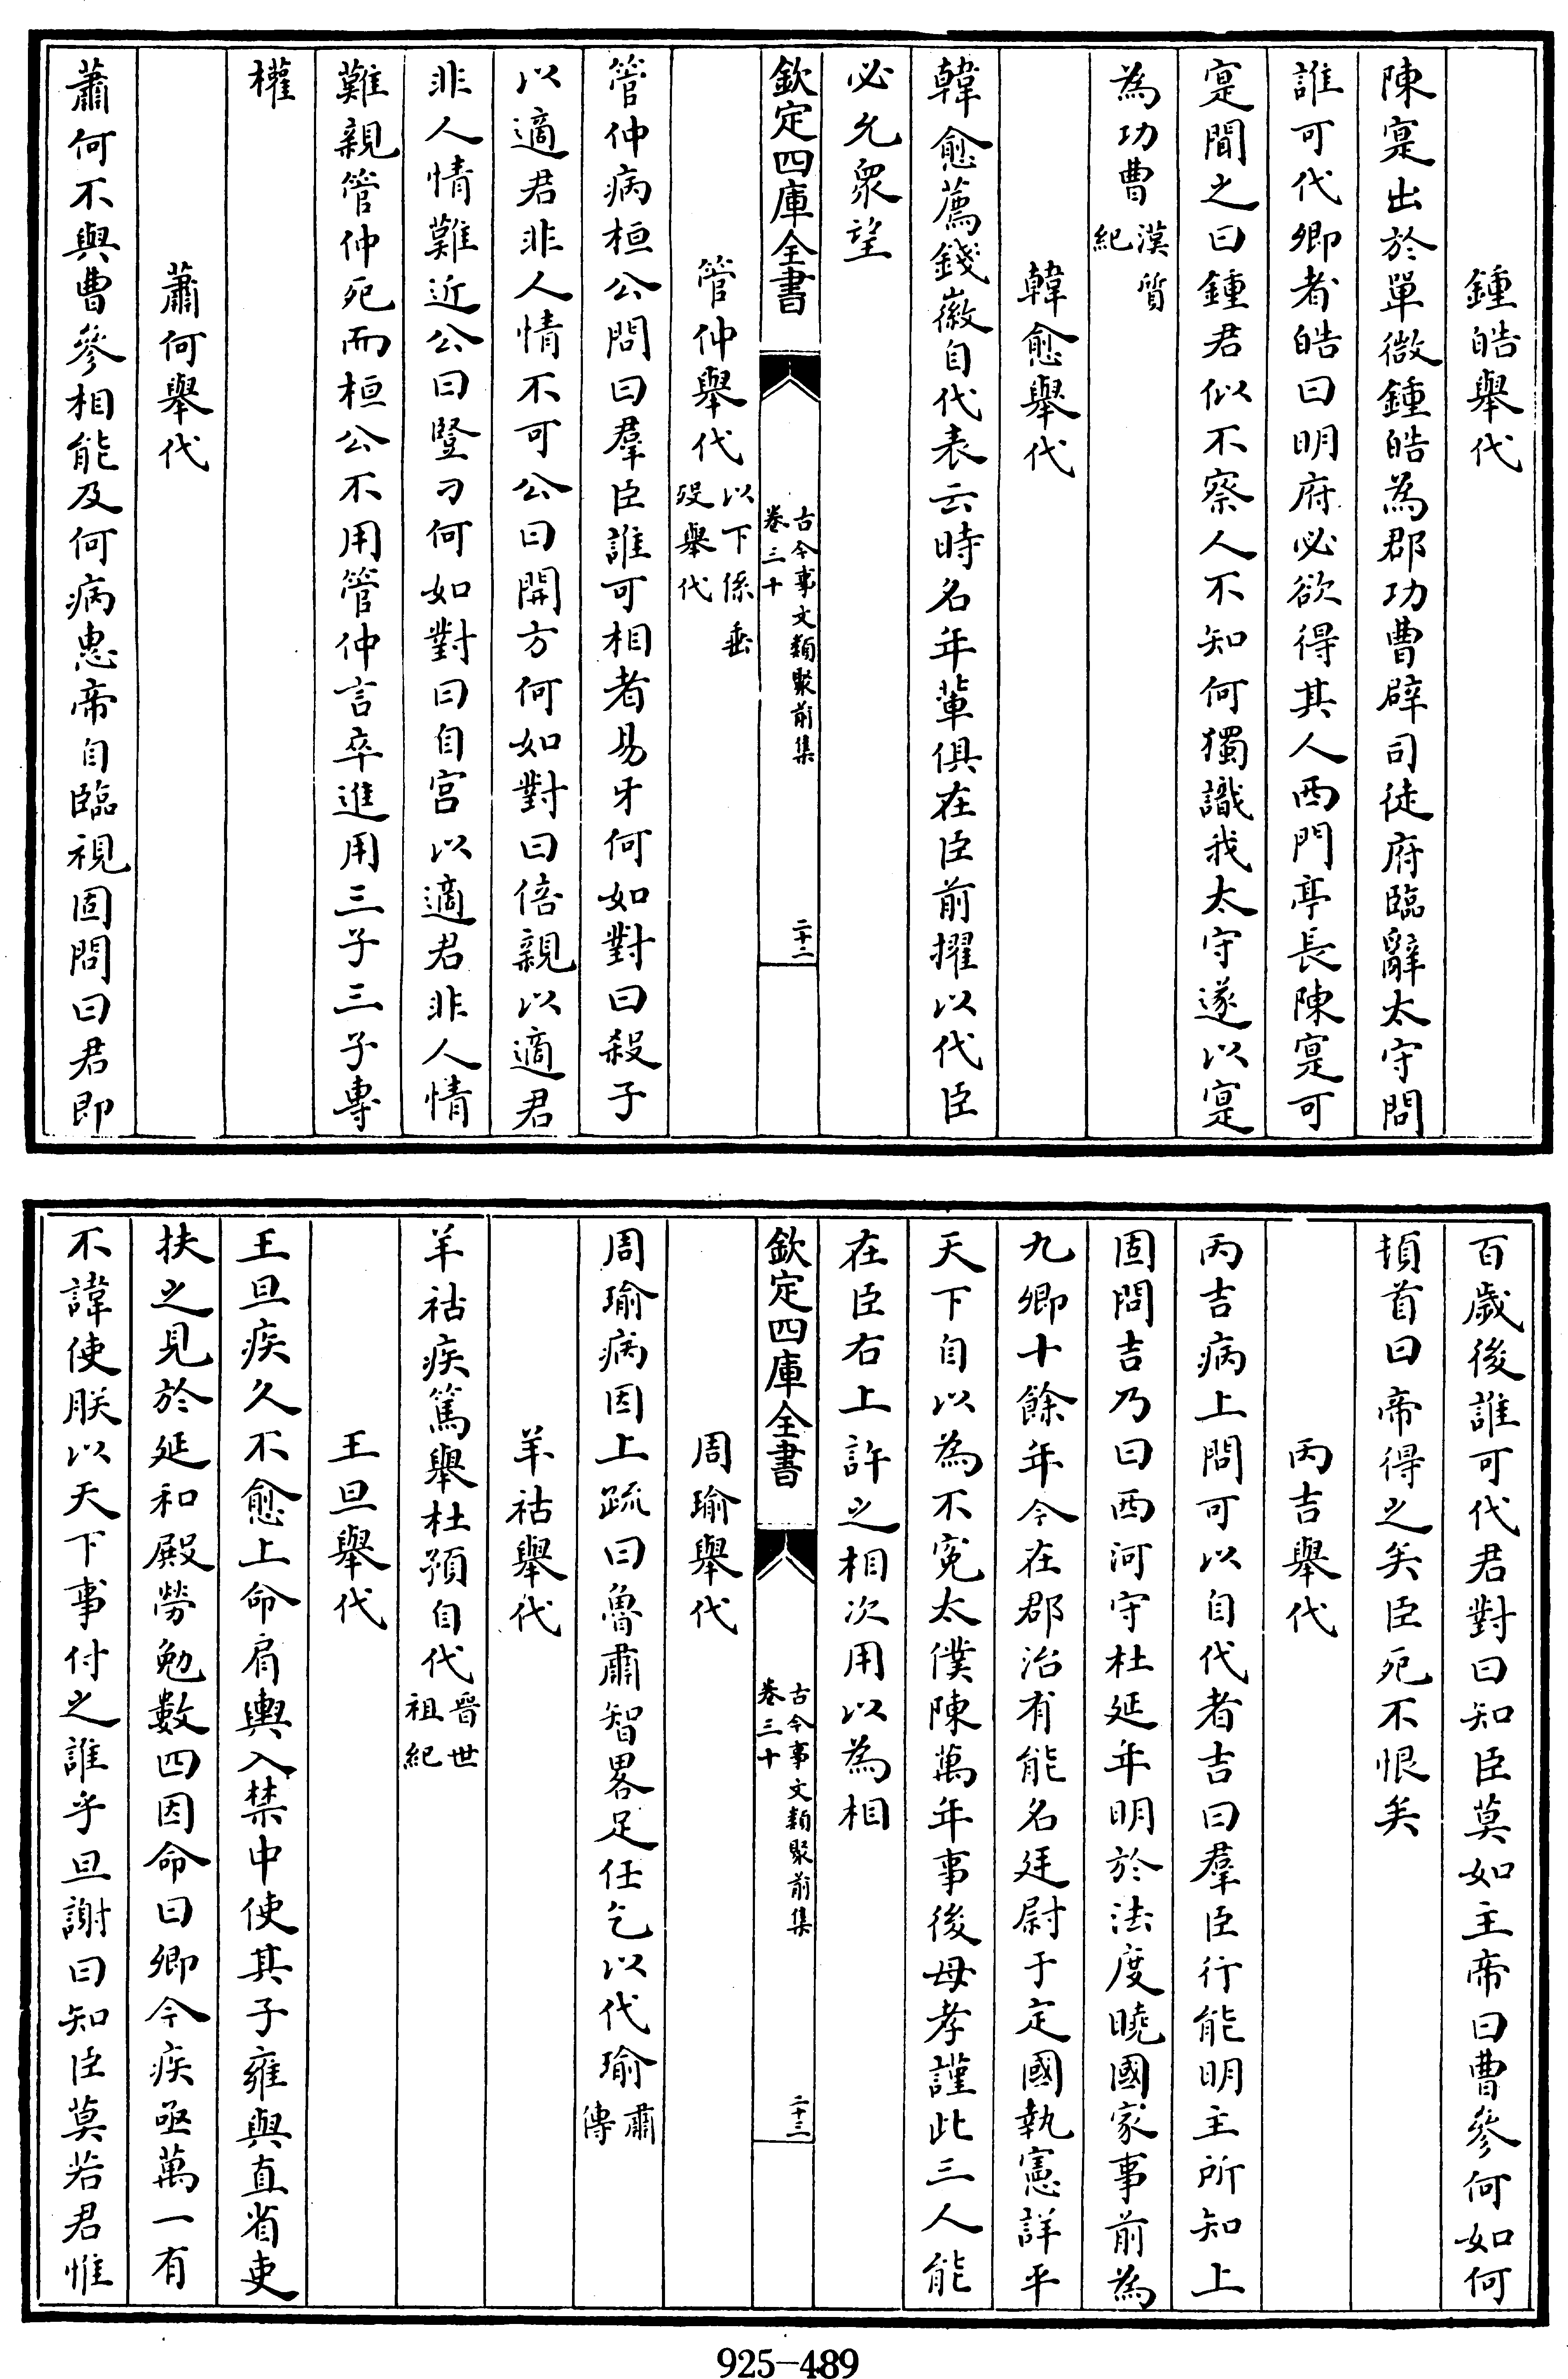 鍾皓舉代
陳寔出於單微鍾皓為郡功曹辟司徒府臨辭太守問
誰可代卿者皓曰明府必欲得其人西門亭長陳寔可
寔聞之曰鍾君似不察人不知何獨識我太守遂以寔
為功曹漢質紀
韓愈舉代
韓愈薦錢徽自代表云時名年軰俱在臣前擢以代臣
必允衆望
欽定四庫全書
古今事文類聚前集
卷三十
二十二
管仲舉代以下係垂歿舉代
管仲病桓公問曰羣臣誰可相者易牙何如對曰殺子
以適君非人情不可公曰開方何如對曰倍親以適君
非人情難近公曰豎刁何如對曰自宮以適君非人情
難親管仲死而桓公不用管仲言卒進用三子三子專
權
蕭何舉代
蕭何不與曹參相能及何病惠帝自臨視固問曰君即
百歲後誰可代君對曰知臣莫如主帝曰曹參何如何
頓首曰帝得之矣臣死不恨矣
丙吉舉代
丙吉病上問可以自代者吉曰羣臣行能明主所知上
固問吉乃曰西河守杜延年明於法度曉國家事前為
九卿十餘年今在郡治有能名廷尉于定國執憲詳平
天下自以為不寃太僕陳萬年事後母孝謹此三人能
在臣右上許之相次用以為相
欽定四庫全書
古今事文類聚前集
卷三十
二十三
周瑜舉代
周瑜病因上疏曰魯肅智畧足任乞以代瑜肅傳
羊祜舉代
羊祜疾篤舉杜預自代晉世祖紀
王旦舉代
王旦疾久不愈上命肩輿入禁中使其子雍與直省吏
扶之見於延和殿勞勉數四因命曰卿今疾亟萬一有
不諱使朕以天下事付之誰乎旦謝曰知臣莫若君惟
925-489